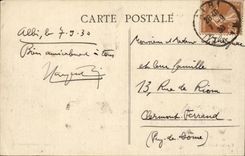 CARTE POSTALE
Albi, le 7-9-30
Bien amicalement à tous
Monsieur et Madame
et leur famille
13, Rue de Riom
Clermont Ferrand
(Puy-de-Dôme)